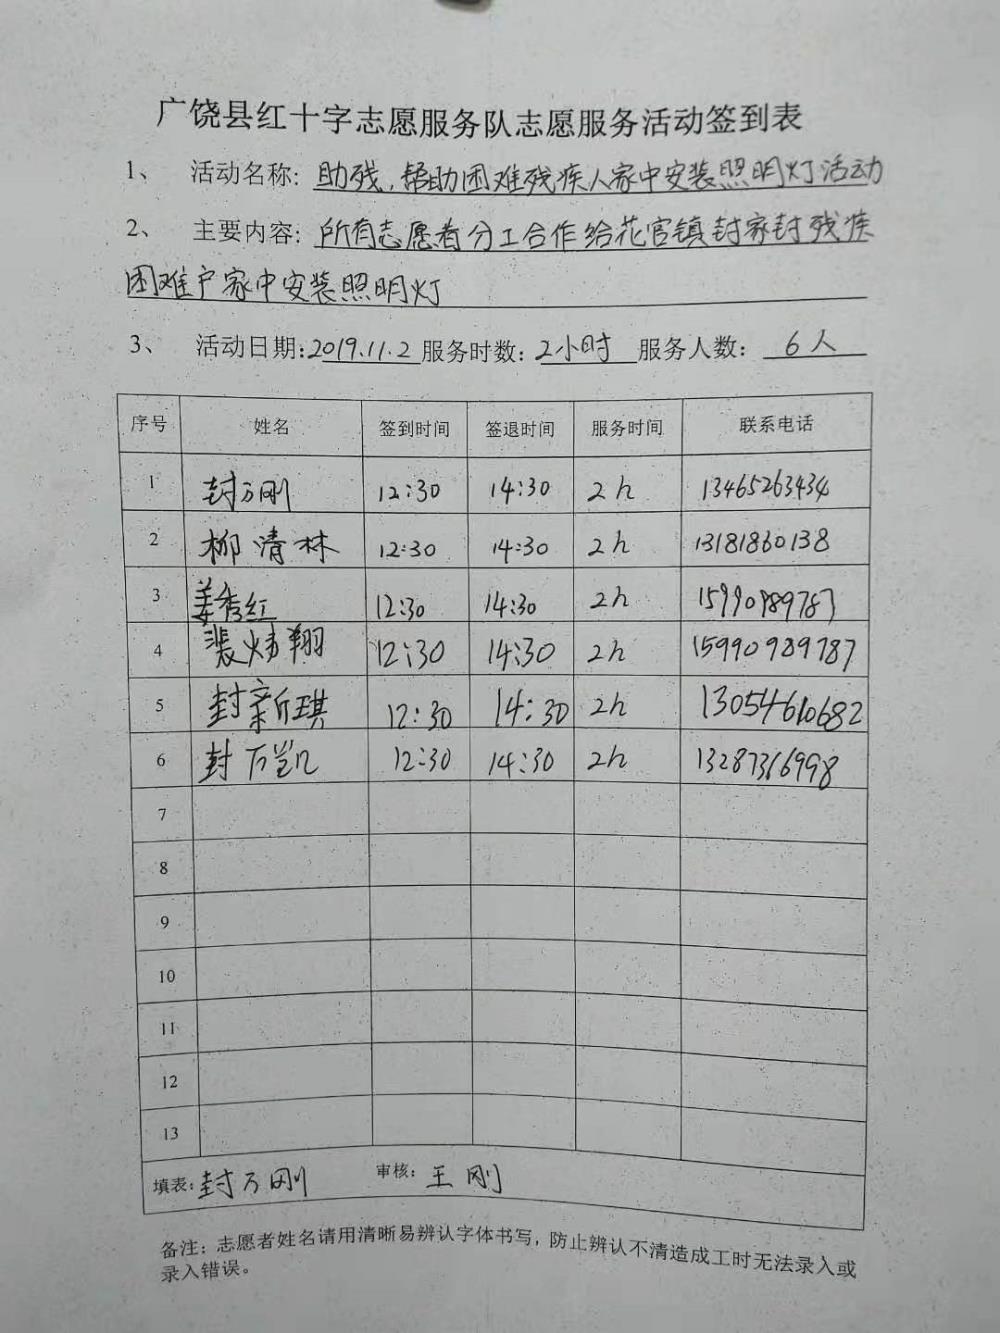 广饶县红十字志愿服务队志愿服务活动签到表
1、 活动名称: 助残,帮助困难残疾人家中安装照明灯活动
2、 主要内容: 所有志愿者分工合作给花官镇封家封残疾
困难户家中安装照明灯
3、 活动日期: 2019.11.2 服务时数: 2小时 服务人数: 6人
序号 姓名 签到时间 签退时间 服务时间 联系电话
1 封万刚 12:30 14:30 2h 13465263434
2 柳清林 12:30 14:30 2h 13181860138
3 姜秀红 12:30 14:30 2h 15990989787
4 裴炜翔 12:30 14:30 2h 15990989787
5 封新琪 12:30 14:30 2h 13054610682
6 封万凯 12:30 14:30 2h 13287316998
7
8
9
10
11
12
13
填表: 封万刚 审核: 王刚
备注: 志愿者姓名请用清晰易辨认字体书写, 防止辨认不清造成工时无法录入或
录入错误。